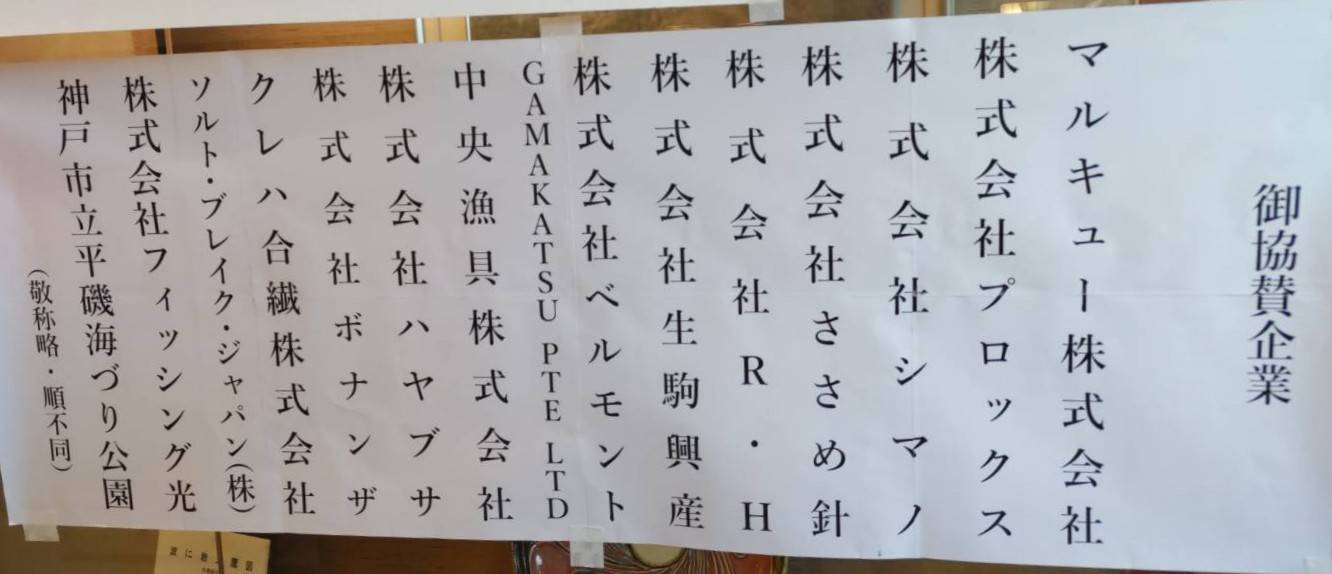 御協賛企業
マルキュー株式会社
株式会社プロックス
株式会社シマノ
株式会社ささめ針
株式会社R・H
株式会社生駒興産
株式会社ベルモント
GAMAKATSU PTE LTD
中央漁具株式会社
株式会社ハヤブサ
株式会社ボナンザ
クレハ合繊株式会社
ソルト・ブレイク・ジャパン(株)
株式会社フィッシング光
神戸市立平磯海づり公園
(敬称略・順不同)